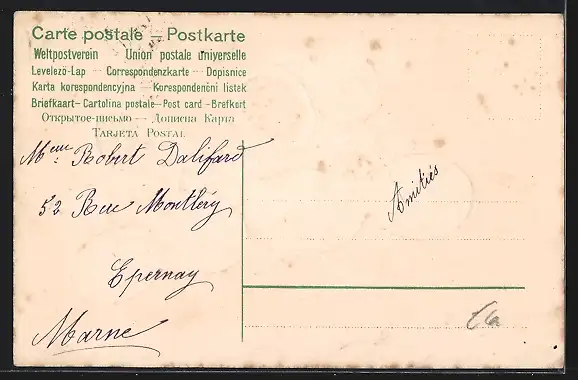 Carte postale — Postkarte
Weltpostverein Union postale universelle
Levelező-Lap — Correspondenzkarte — Dopisnice
Karta korespondencyjna — Korespondenční listek
Briefkaart – Cartolina postale – Post card – Brefkort
Открытое-письмо — Дописна Карта
TARJETA POSTAL
Meme Robert Dalifard
52 Rue Montléry
Epernay
Marne
Amitiés